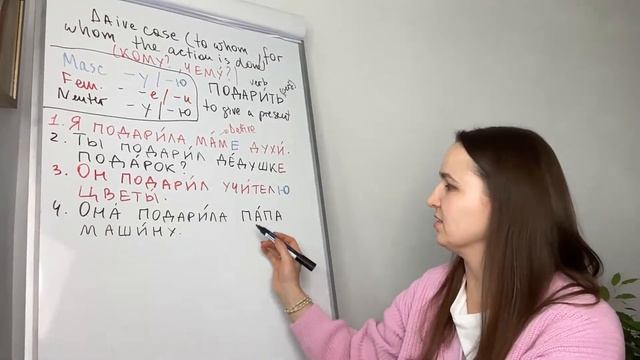 Дaive case (to whom for
whom the action is done)
(КОМУ? ЧЕМУ?)
Masc -У/-Ю
Fem. -е/-и
Neuter -У/-Ю
verb
ПОДАРИ́ТЬ
to give a present
1. Я ПОДАРИ́ЛА МА́МЕ ДУХИ́.
2. ТЫ ПОДАРИ́Л ДЕ́ДУШКЕ
ПОДА́РОК?
3. ОН ПОДАРИ́Л УЧИ́ТЕЛЮ
ЦВЕТЫ́.
4. ОНА́ ПОДАРИ́ЛА ПА́ПА
МАШИ́НУ.